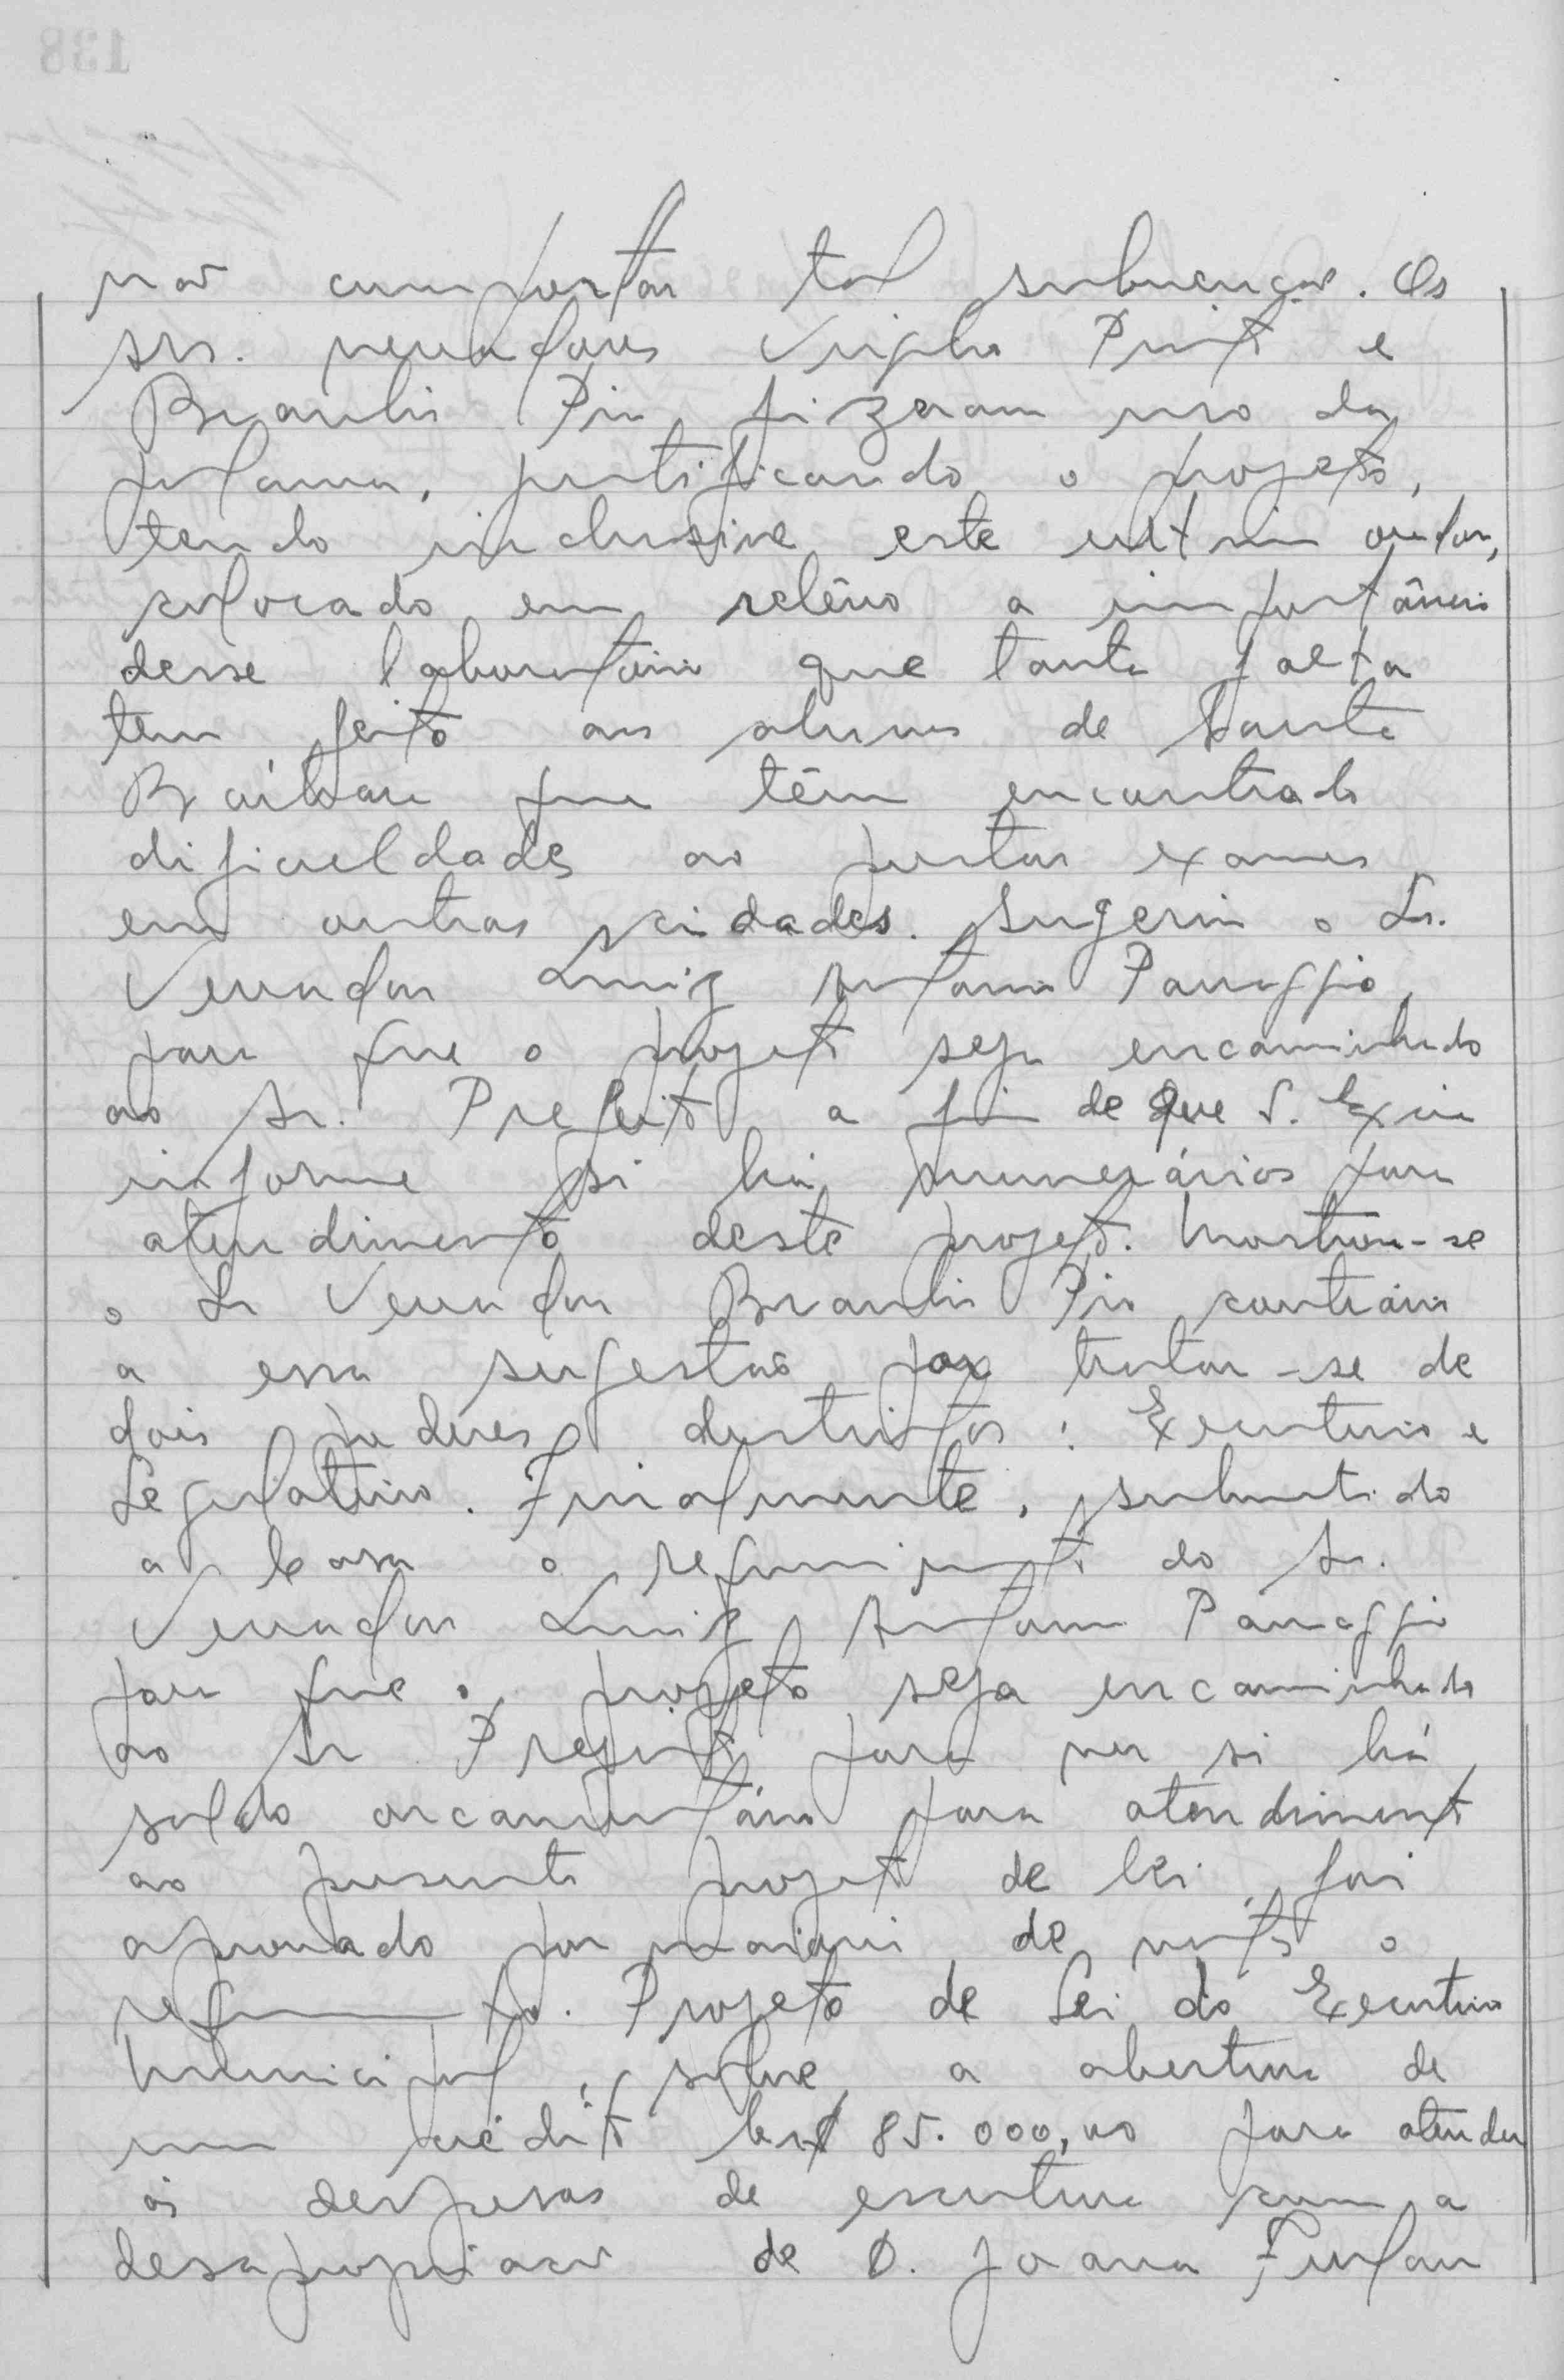 não comportar tal subvenção. Os
srs. vereadores Virgilio Pinto e
Braulio Pio, fizeram uso da
palavra, justificando o projeto,
tendo inclusive este ultimo orador,
colocado em relêvo a importância
desse laboratório que tanta falta
tem feito aos alunos de Santa
Bárbara que têm encontrado
dificuldades ao prestar exames
em outras cidades. Sugeriu o Sr.
Vereador Luiz Antonio Panaggio,
para que o projeto seja encaminhado
ao Sr. Prefeito a fim de que S. Excia
informe si há numerários para
atendimento deste projeto. Mostrou-se
o Sr Vereador Braulio Pio contrário
a essa sugestão por tratar-se de
dois poderes distintos: Executivo e
Legislativo. Finalmente, submetido
a Casa o requerimento do Sr.
Vereador Luiz Antonio Panaggio
para que o projeto seja encaminhado
ao Sr Prefeito para ver si há
saldo orçamentário para atendimento
ao presente projeto de lei, foi
aprovado por maioria de votos o
requerimento. Projeto de Lei do Executivo
Municipal, sobre a abertura de
um crédito Cr$ 85.000,00 para atender
ás despesas de escritura com a
desapropriação de D. Joana Furlan
138